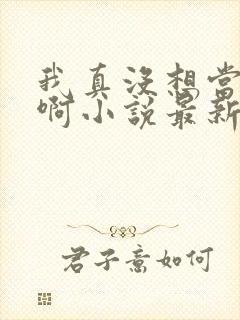 我真没想当
啊小说最新
君子意如何